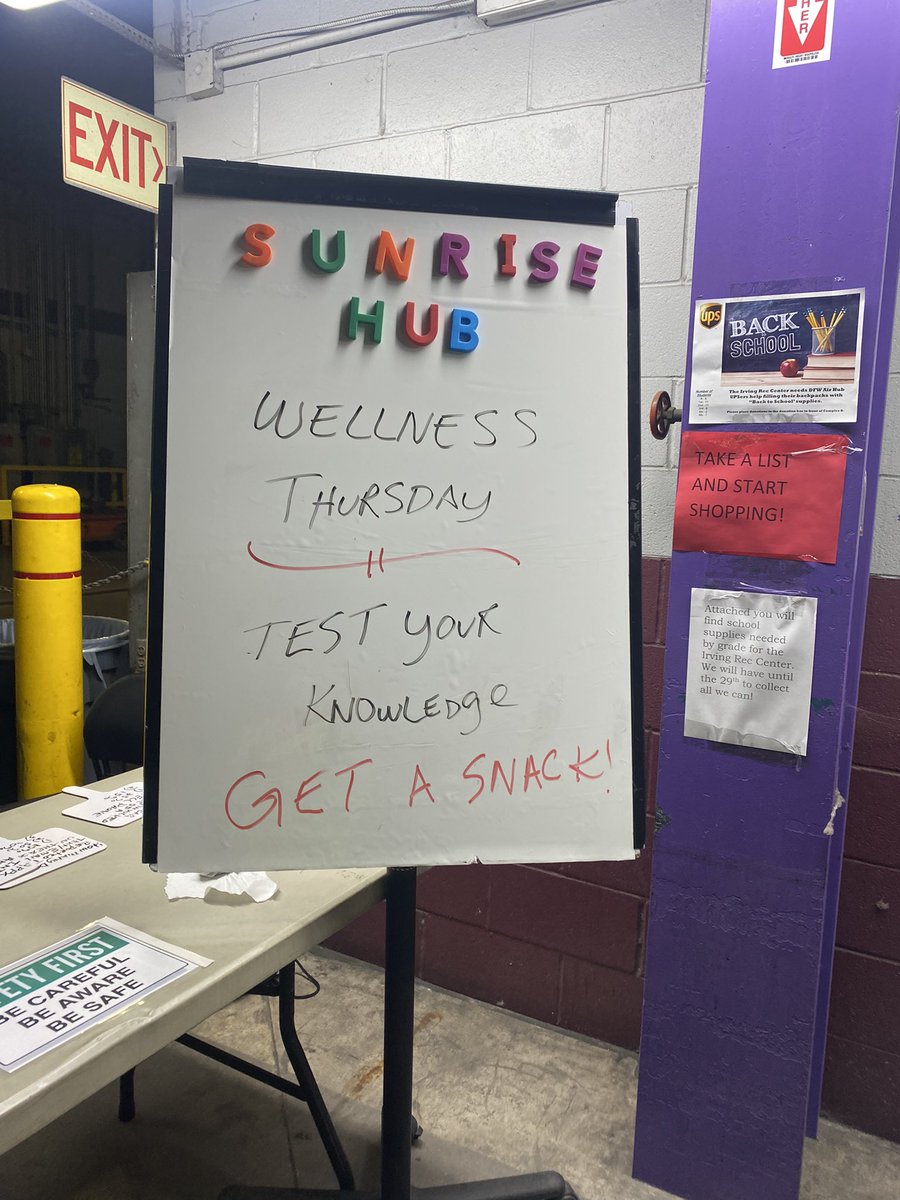 HER
EXIT>
SUNRISE
HUB
WELLNESS
THURSDAY
TEST YOUR
KNOWLEDGE
GET A SNACK!
ups
BACK
TO SCHOOL
The Irving Rec Center needs DFW Air Hub
UPSers help filling their backpacks with
"Back to School" supplies.
Number of
Students
TAKE A LIST
AND START
SHOPPING!
Attached you will
find school
supplies needed
by grade for the
Irving Rec Center.
We will have until
the 29th to collect
all we can!
ETY FIRST
BE CAREFUL
BE AWARE
BE SAFE